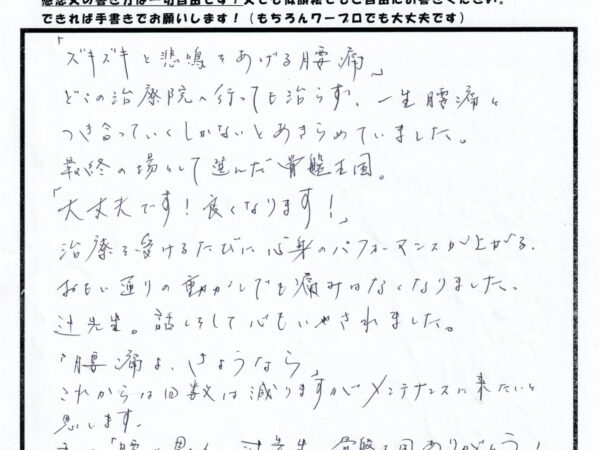 できれば手書きでお願いします！（もちろんワープロでも大丈夫です）
「ズキズキと悲鳴をあげる腰痛」
どこの治療院へ行っても治らず、一生腰痛と
つき合っていくしかないとあきらめていました。
最終の場として選んだ骨盤王国。
「大丈夫です！良くなります！」
治療を受けるたびに心身のパフォーマンスが上がる。
おもい通りの動かしでも痛みはなくなりました。
辻先生。話しをして心もいやされました。
「腰痛よ、さようなら」
これからは回数は減りますがメンテナンスに来たいと
思います。